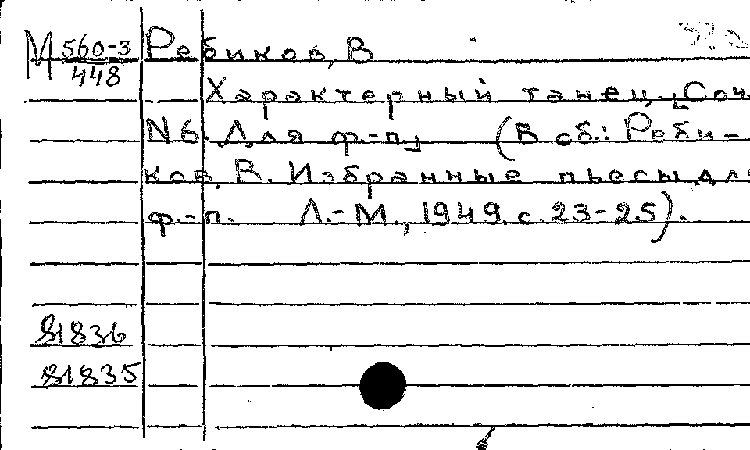 М 560-3 Ребиков, В
448
Характерный танец. [Соч.
N6. Для ф.-п.] (В сб.: Реби-
ков, В. Избранные пьесы для
ф.-п. Л.-М., 1949. с. 23-25).
81836
81835